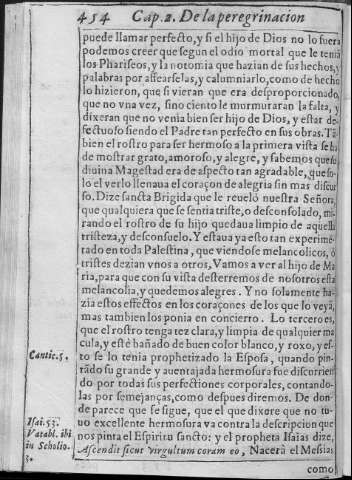 454 Cap. 2. De la peregrinacion
puede llamar perfecto, y si el hijo de Dios no lo fuera
podemos creer que segun el odio mortal que le tenia
los Phariseos, y la notomia que hazian de sus hechos, y
palabras por affearselas, y calumniarlo, como de hecho
lo hizieron, que si vieran que era desproporcionado,
que no vna vez, sino ciento le murmuraran la falta, y
dixeran que no venia bien ser hijo de Dios, y estar de-
fectuoso siendo el Padre tan perfecto en sus obras. Tã
bien el rostro para ser hermoso a la primera vista se ha
de mostrar grato, amoroso, y alegre, y sabemos que su
diuina Magestad era de aspecto tan agradable, que so-
lo el verlo llenaua el coraçon de alegria sin mas discur
so. Dize sancta Brigida que le reueló nuestra Señora,
que qualquiera que se sentia triste, o desconsolado, mi
rando el rostro de su hijo quedaua limpio de aquella
tristeza, y desconsuelo. Y estaua ya esto tan experimē
tado en toda Palestina, que viendose melancolicos, ò
tristes dezian vnos a otros, Vamos a ver al hijo de Ma
ria, para que con su vista desterremos de nosotros esta
melancolia, y quedemos alegres. Y no solamente ha-
zia estos effectos en los coraçones de los que lo veyã,
mas tambien los ponia en concierto. Lo tercero es,
que el rostro tenga tez clara, y limpia de qualquier ma
cula, y esté bañado de buen color blanco, y roxo, y es-
Cantic. 5. to se lo tenia prophetizado la Esposa, quando pin-
tãdo su grande y auentajada hermosura fue discurrien
do por todas sus perfectiones corporales, contando-
las por semejanças, como despues diremos. De don-
de parece que se sigue, que el que dixere que no tu-
Isai. 53. uo excellente hermosura va contra la descripcion que
Vatabl. ibi nos pinta el Espiritu sancto: y el propheta Isaias dize,
in Scholio. Ascendit sicut virgultum coram eo, Nacerá el Messias
3.
como